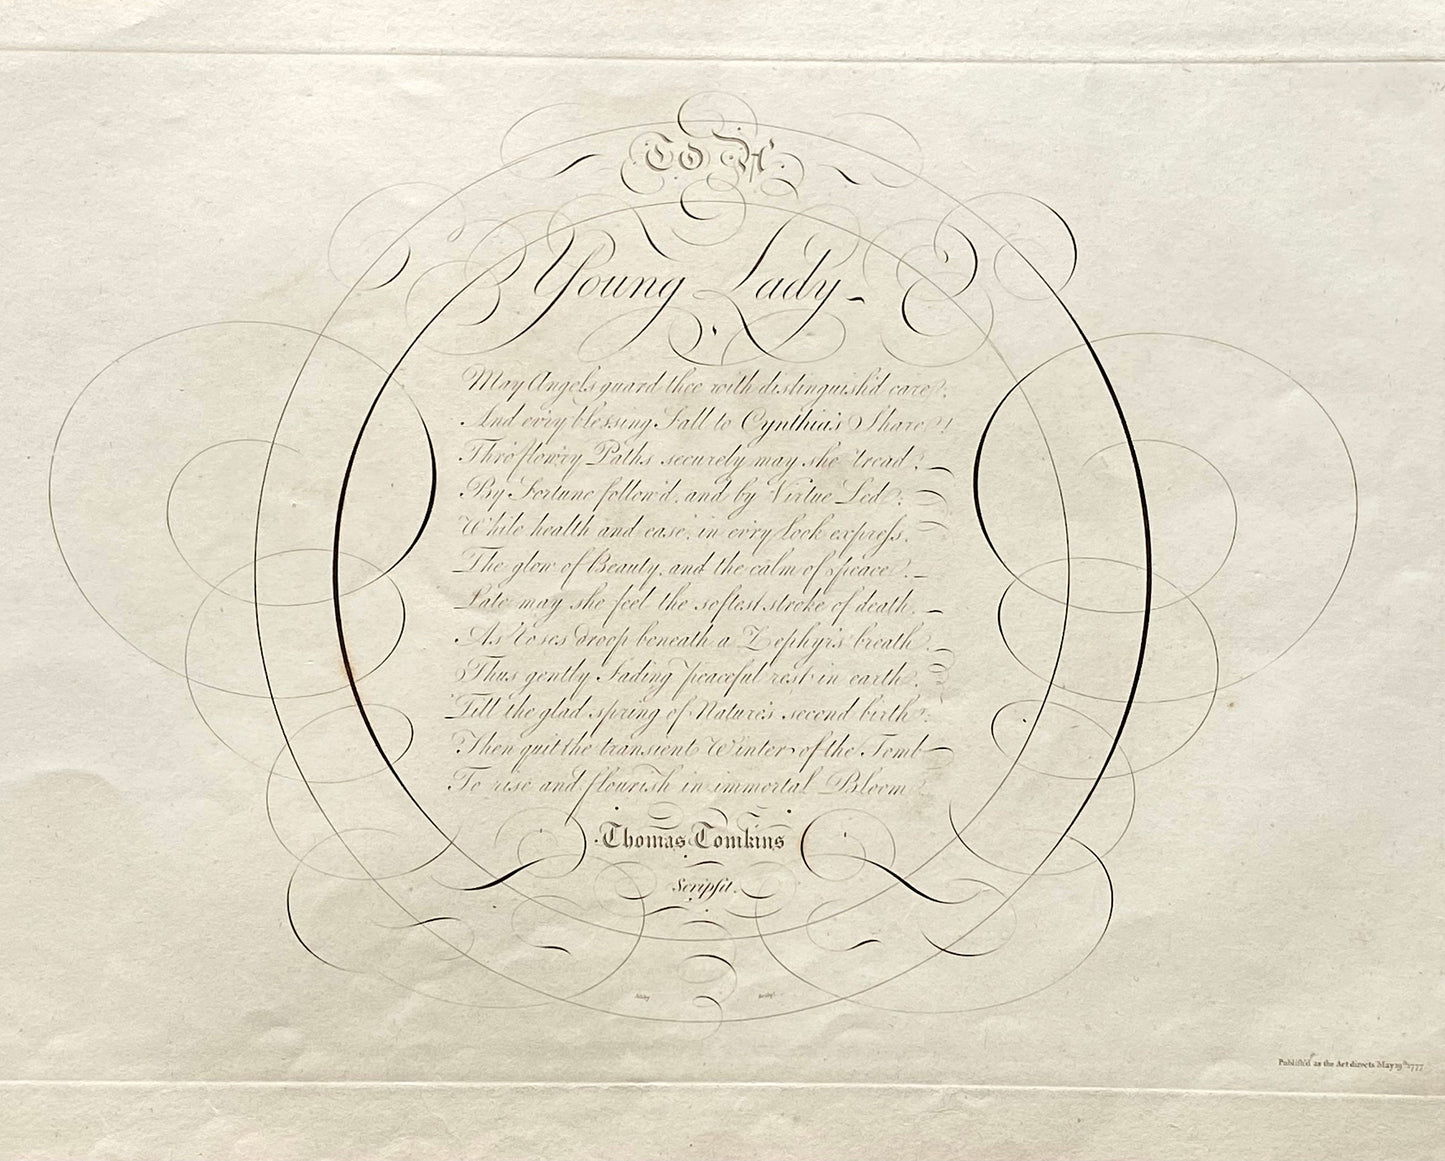 To A
Young Lady
May Angels guard thee with distinguish'd care,
And ev'ry blessing Fall to Cynthia's Share!
Thro' flow'ry Paths securely may she tread,
By Fortune follow'd, and by Virtue Led;
While health and ease, in ev'ry Look expreſs,
The glow of Beauty, and the calm of peace.
Late may she feel the softest stroke of death,
As Roses droop beneath a Zephyr's breath
Thus gently Fading peaceful rest in earth,
Till the glad spring of Nature's second birth;
Then quit the transient Winter of the Tomb
To rise and flourish in immortal Bloom
Thomas Tomkins
Scripsit.
Ashby
Publiſh'd as the Act directs May 19th 1777